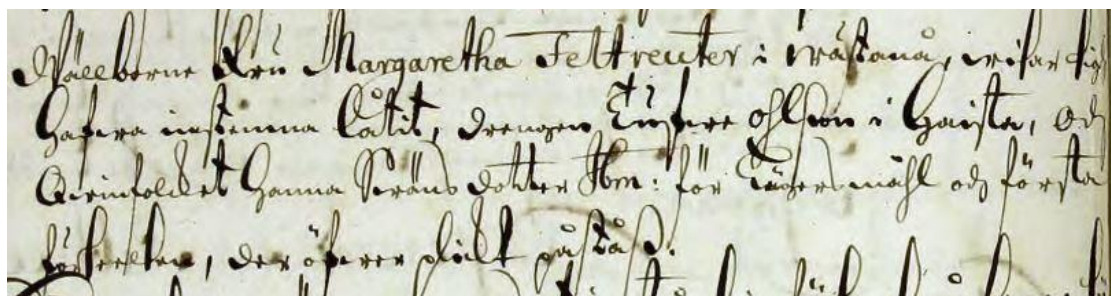 Wälborne Fru Margaretha Feltreuter i Wästanå, witar sig
hafwa instemma låtit, drengen Tufwe Ohlson i Gaista, och
Qwinfolcket Hanna Swäns dotter ibm: för Lägersmåhl och första
resan, der öfwer plickt påstås.